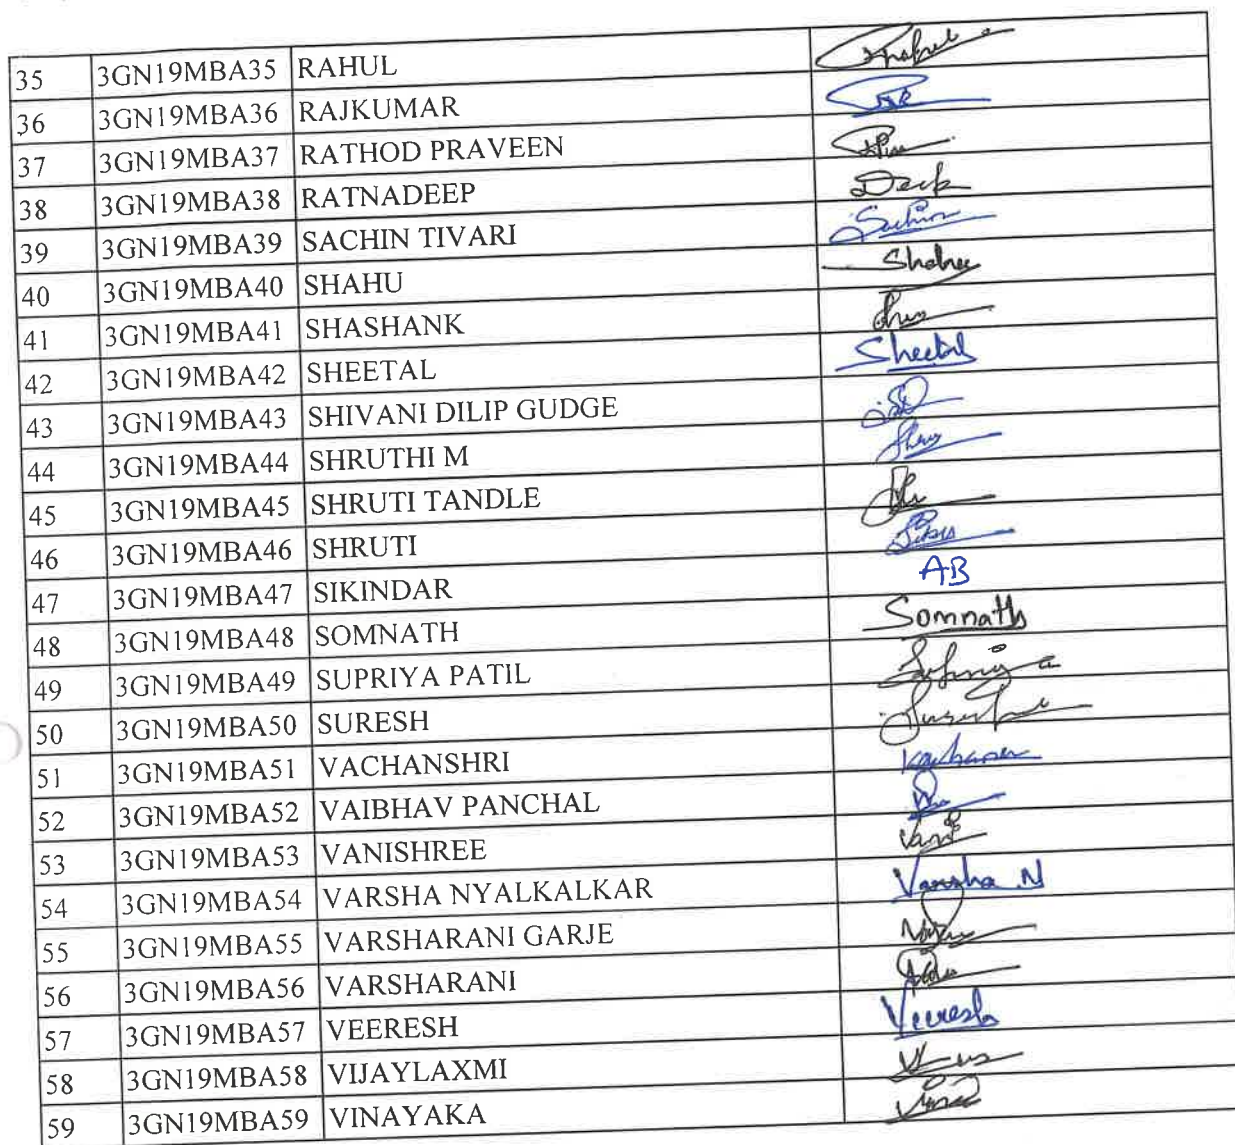 35 3GN19MBA35 RAHUL Rahul
36 3GN19MBA36 RAJKUMAR
37 3GN19MBA37 RATHOD PRAVEEN
38 3GN19MBA38 RATNADEEP
39 3GN19MBA39 SACHIN TIVARI Sachin
40 3GN19MBA40 SHAHU
41 3GN19MBA41 SHASHANK
42 3GN19MBA42 SHEETAL Sheetal
43 3GN19MBA43 SHIVANI DILIP GUDGE
44 3GN19MBA44 SHRUTHI M
45 3GN19MBA45 SHRUTI TANDLE
46 3GN19MBA46 SHRUTI
47 3GN19MBA47 SIKINDAR AB
48 3GN19MBA48 SOMNATH Somnath
49 3GN19MBA49 SUPRIYA PATIL
50 3GN19MBA50 SURESH
51 3GN19MBA51 VACHANSHRI
52 3GN19MBA52 VAIBHAV PANCHAL
53 3GN19MBA53 VANISHREE
54 3GN19MBA54 VARSHA NYALKALKAR Varsha .N
55 3GN19MBA55 VARSHARANI GARJE
56 3GN19MBA56 VARSHARANI
57 3GN19MBA57 VEERESH Veeresh
58 3GN19MBA58 VIJAYLAXMI
59 3GN19MBA59 VINAYAKA